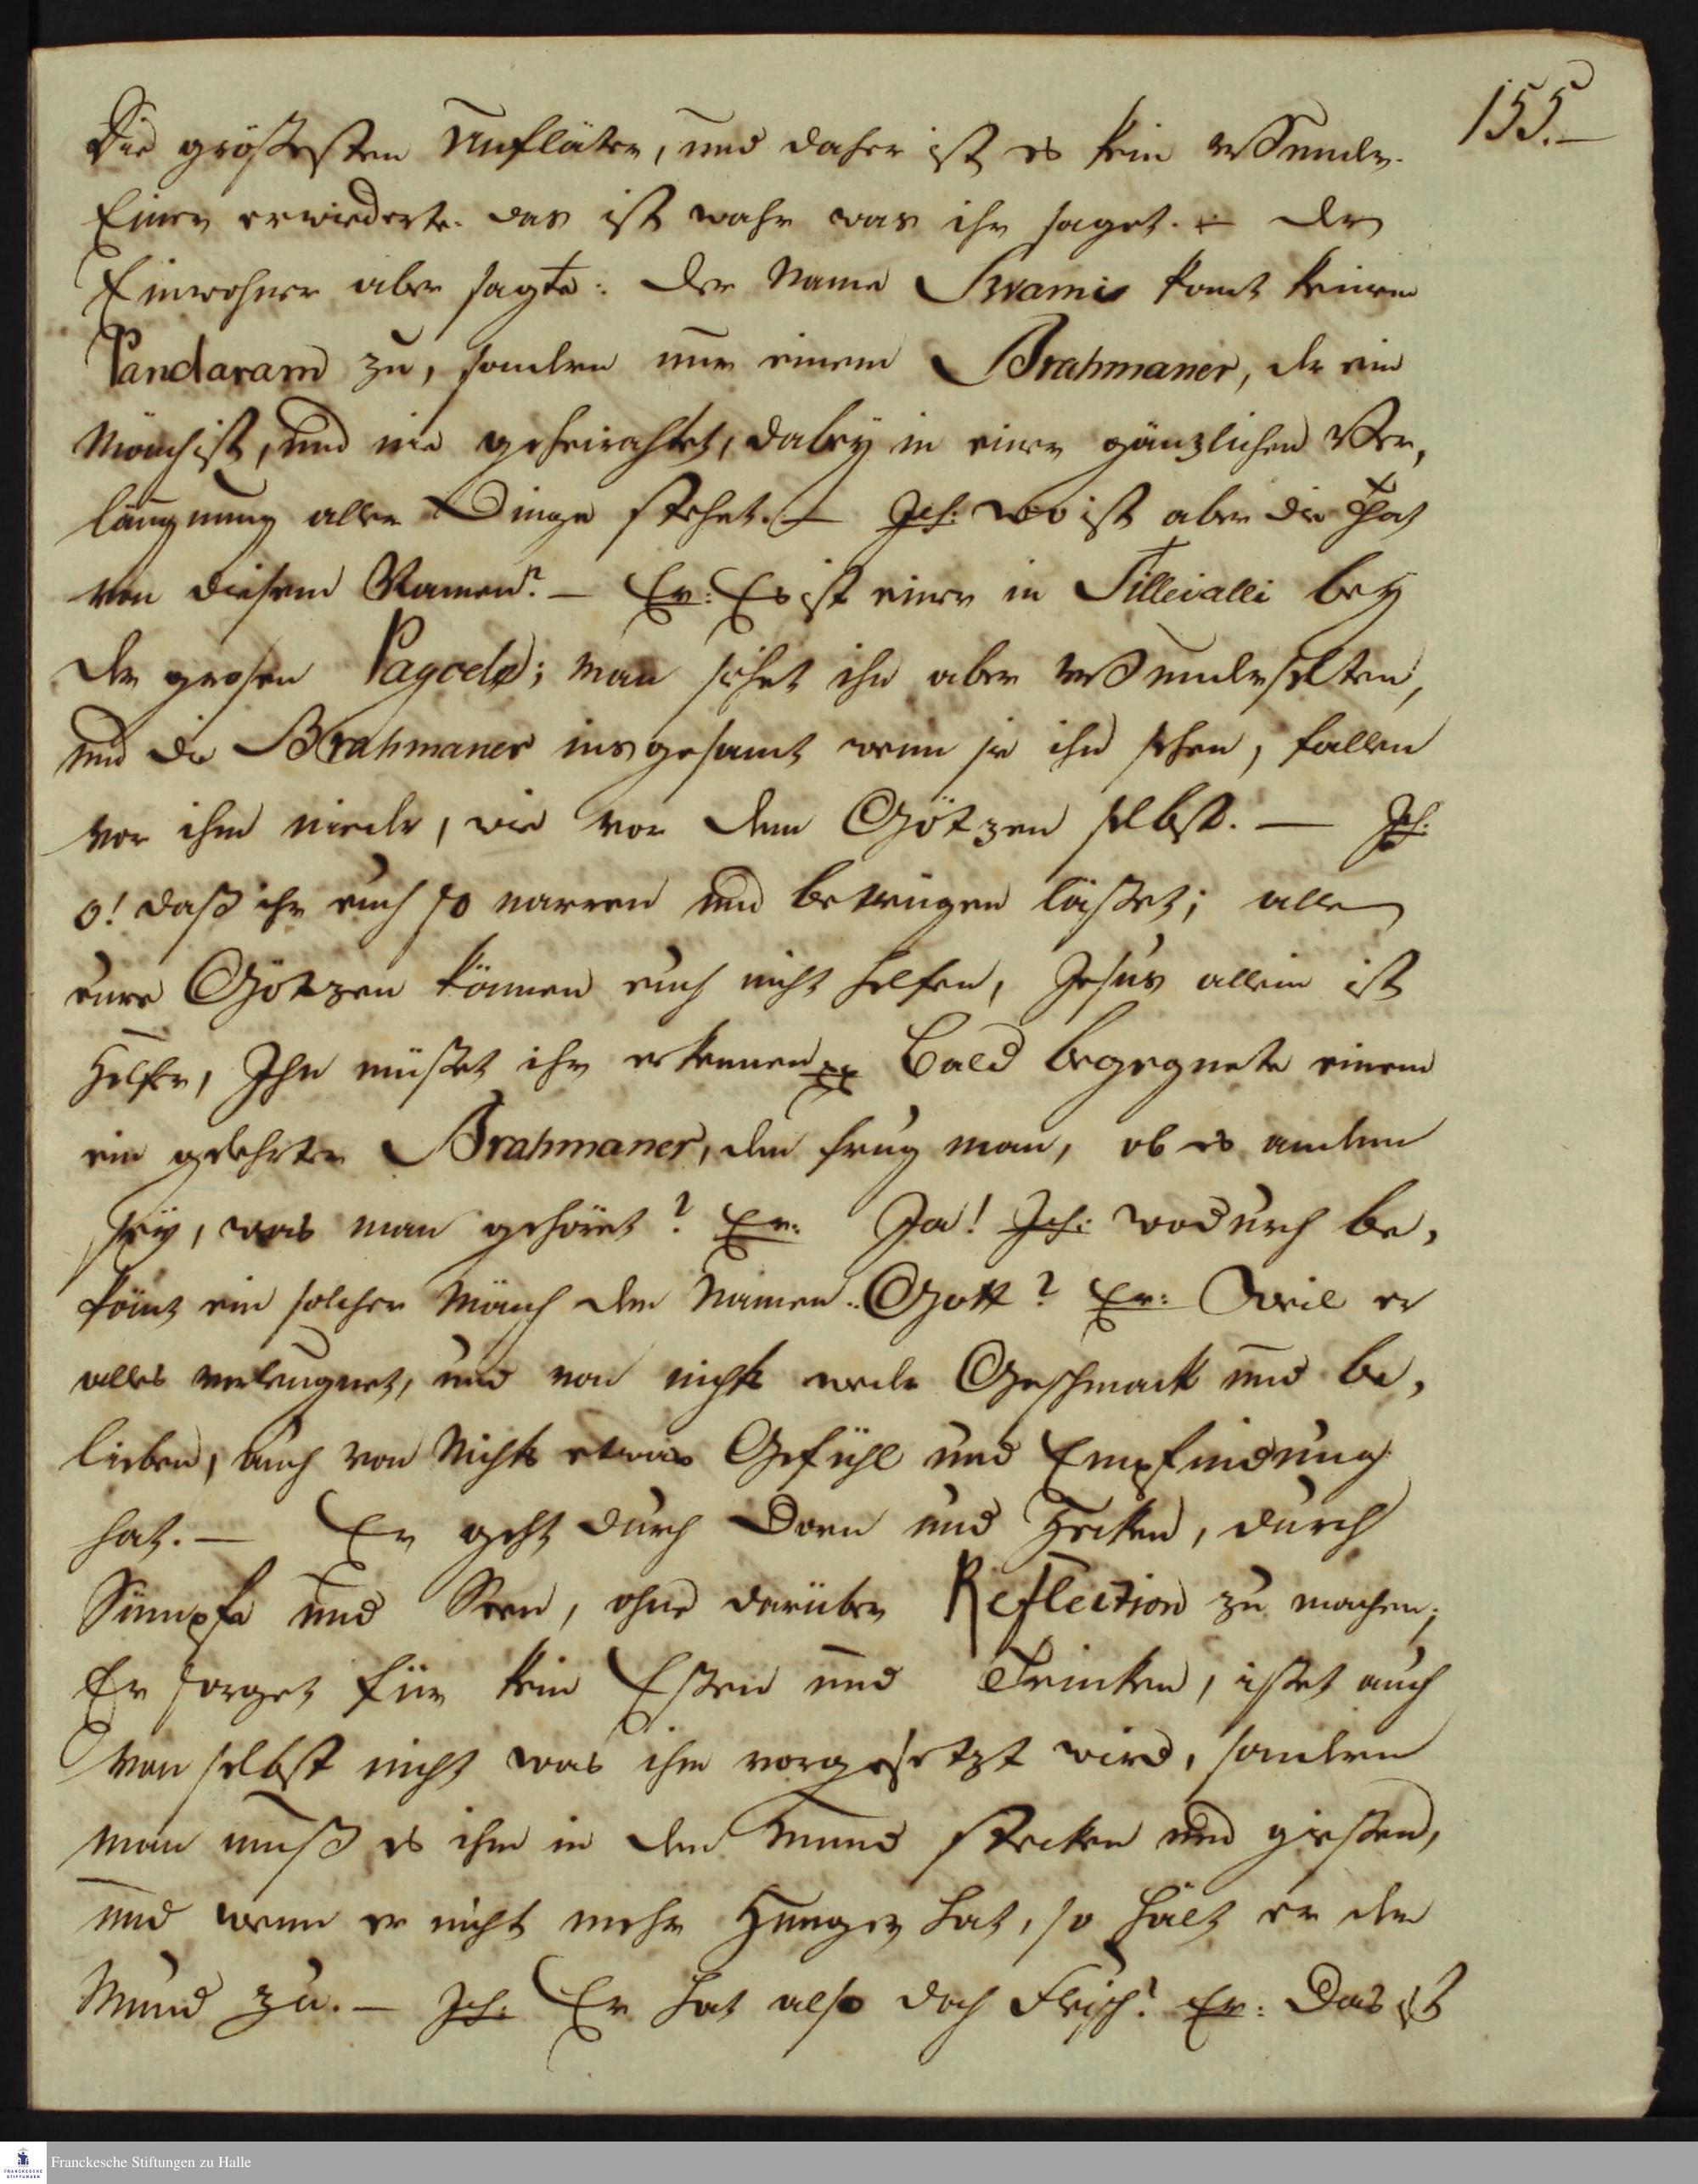 155.
Die größesten Unfläter, und daher ist es kein Wunder.
Einer erwiederte: das ist wahr was ihr saget. – Der
Einwohner aber sagte: Der Name Swamis komt keinem
Pandaram zu, sondern nur einem Brahmaner, der ein
Mönch ist, und nie geheirathet, dabey in einer gänzlichen Ver,
läugnung aller Dinge stehet. – Ich: wo ist aber die That
von diesem Namen? – Er: Es ist einer in Tilleialli bey
der grosen Pagode; man sihet ihn aber Wunderselten,
und die Brahmaner insgesamt wenn sie ihn sehen, fallen
vor ihm nieder, wie vor dem Götzen selbst. – Ich:
O! daß ihr euch so narren und betrügen laßet; alle
eure Götzen können euch nicht helfen, Jesus allein ist
Helfer, Ihn müßet ihr erkennen Bald begegnete einem
ein gelehrter Brahmaner, den frug man, ob es andem
sey, was man gehöret? Er: Ja! Ich: wodurch be,
kömt ein solcher Mönch den Namen: Gott? Er: Weil er
alles verleugnet, und von nichts weder Geschmack und be,
lieben, auch von Nichts etwas Gefühl und Empfindung
hat. – Er geht durch Dorn und Hecken, durch
Sümpfe und Seen, ohne darüber Reflection zu machen;
Er sorget für kein Eßen und Trinken, ißet auch
von selbst nicht was ihm vorgesetzt wird, sondern
man muß es ihm in den Mund stecken und gießen,
und wenn er nicht mehr Hunger hat, so hält er den
Mund zu. – Ich: Er hat also doch Fleisch? Er: Das ist
Franckesche Stiftungen zu Halle
FRANCKESCHE
STIFTUNGEN